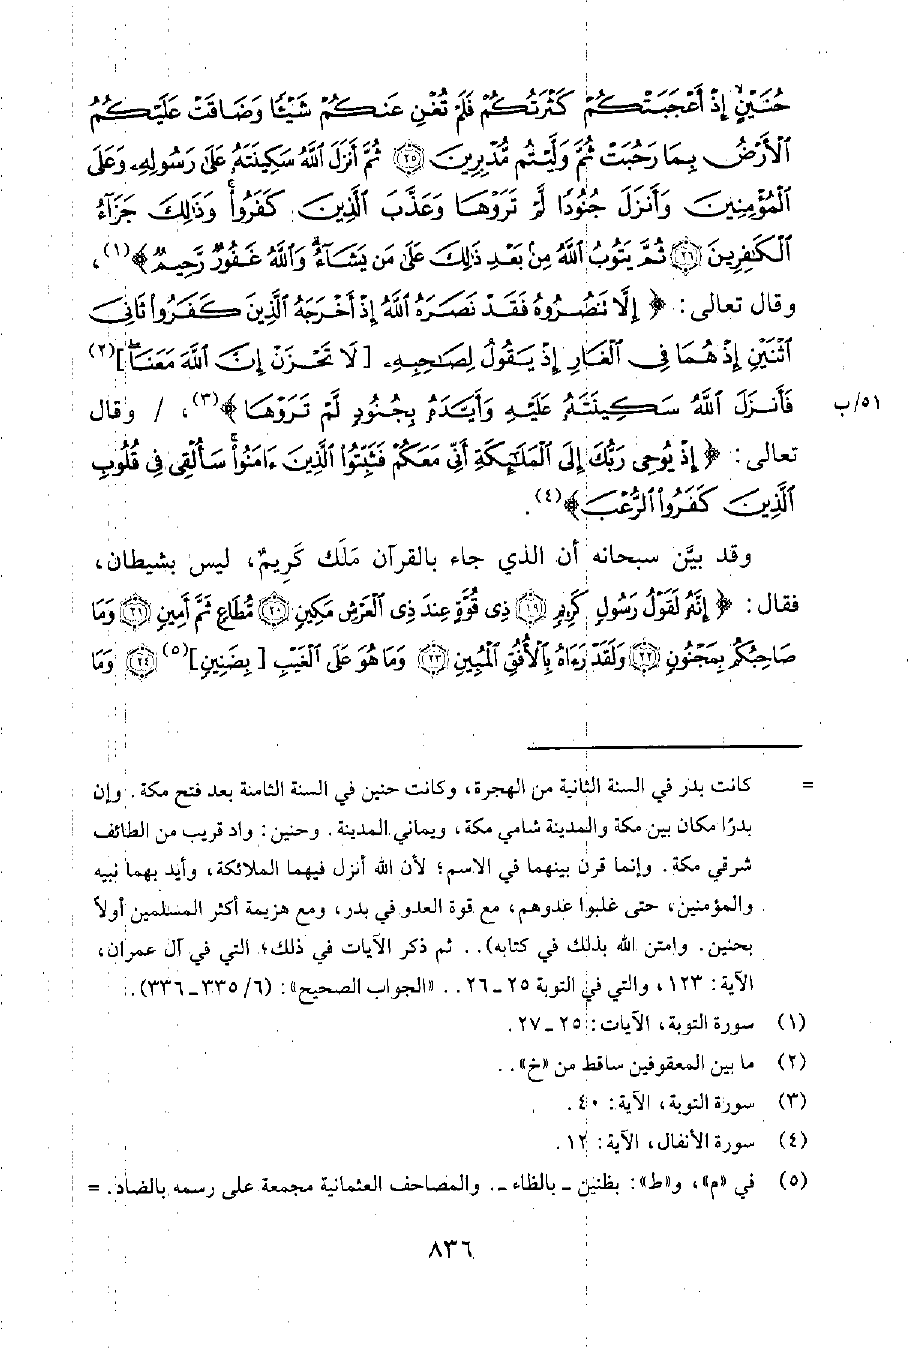 حُنَيْنٍ إِذْ أَعْجَبَتْكُمْ كَثْرَتُكُمْ فَلَمْ تُغْنِ عَنكُمْ شَيْئًا وَضَاقَتْ عَلَيْكُمُ
ٱلْأَرْضُ بِمَا رَحُبَتْ ثُمَّ وَلَّيْتُم مُّدْبِرِينَ ۝٢٥ ثُمَّ أَنزَلَ ٱللَّهُ سَكِينَتَهُۥ عَلَىٰ رَسُولِهِۦ وَعَلَى
ٱلْمُؤْمِنِينَ وَأَنزَلَ جُنُودًا لَّمْ تَرَوْهَا وَعَذَّبَ ٱلَّذِينَ كَفَرُوا۟ۚ وَذَٰلِكَ جَزَآءُ
ٱلْكَـٰفِرِينَ ۝٢٦ ثُمَّ يَتُوبُ ٱللَّهُ مِنۢ بَعْدِ ذَٰلِكَ عَلَىٰ مَن يَشَآءُۗ وَٱللَّهُ غَفُورٌ رَّحِيمٌ﴾(١)،
وقال تعالى: ﴿ إِلَّا تَنصُرُوهُ فَقَدْ نَصَرَهُ ٱللَّهُ إِذْ أَخْرَجَهُ ٱلَّذِينَ كَفَرُوا۟ ثَانِىَ
ٱثْنَيْنِ إِذْ هُمَا فِى ٱلْغَارِ إِذْ يَقُولُ لِصَـٰحِبِهِۦ [لَا تَحْزَنْ إِنَّ ٱللَّهَ مَعَنَاۖ](٢)
فَأَنزَلَ ٱللَّهُ سَكِينَتَهُۥ عَلَيْهِ وَأَيَّدَهُۥ بِجُنُودٍ لَّمْ تَرَوْهَا﴾(٣)، / وقال ٥١/ب
تعالى: ﴿ إِذْ يُوحِى رَبُّكَ إِلَى ٱلْمَلَـٰٓئِكَةِ أَنِّى مَعَكُمْ فَثَبِّتُوا۟ ٱلَّذِينَ ءَامَنُوا۟ۚ سَأُلْقِى فِى قُلُوبِ
ٱلَّذِينَ كَفَرُوا۟ ٱلرُّعْبَ﴾(٤).
وقد بيَّن سبحانه أن الذي جاء بالقرآن مَلَك كَرِيمٌ، ليس بشيطان،
فقال: ﴿ إِنَّهُۥ لَقَوْلُ رَسُولٍ كَرِيمٍ ۝١٩ ذِى قُوَّةٍ عِندَ ذِى ٱلْعَرْشِ مَكِينٍ ۝٢٠ مُّطَاعٍ ثَمَّ أَمِينٍ ۝٢١ وَمَا
صَاحِبُكُم بِمَجْنُونٍ ۝٢٢ وَلَقَدْ رَءَاهُ بِٱلْأُفُقِ ٱلْمُبِينِ ۝٢٣ وَمَا هُوَ عَلَى ٱلْغَيْبِ [بِضَنِينٍ](٥) ۝٢٤ وَمَا
= كانت بدر في السنة الثانية من الهجرة، وكانت حنين في السنة الثامنة بعد فتح مكة. وإن
بدرًا مكان بين مكة والمدينة شامي مكة، ويماني المدينة. وحنين: واد قريب من الطائف
شرقي مكة. وإنما قرن بينهما في الاسم؛ لأن الله أنزل فيهما الملائكة، وأيد بهما نبيه
والمؤمنين، حتى غلبوا عدوهم، مع قوة العدو في بدر، ومع هزيمة أكثر المسلمين أولاً
بحنين. وامتن الله بذلك في كتابه).. ثم ذكر الآيات في ذلك؛ التي في آل عمران،
الآية: ١٢٣، والتي في التوبة ٢٥ـ٢٦.. «الجواب الصحيح»: (٦/ ٣٣٥ـ٣٣٦).
(١) سورة التوبة، الآيات: ٢٥ـ٢٧.
(٢) ما بين المعقوفين ساقط من «خ»..
(٣) سورة التوبة، الآية: ٤٠.
(٤) سورة الأنفال، الآية: ١٢.
(٥) في «م»، و«ط»: بظنين ـ بالظاء ـ. والمصاحف العثمانية مجمعة على رسمه بالضاد. =
٨٣٦